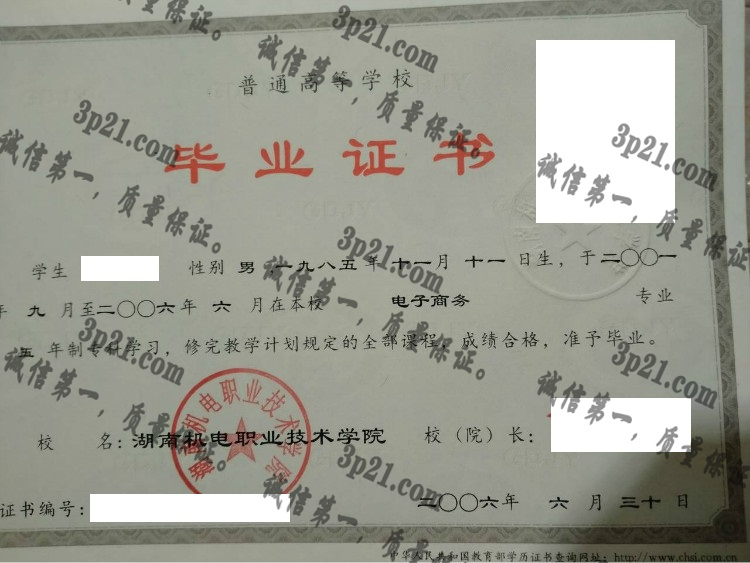 普通高等学校
毕业证书
学生 性别 男 ,一九八五年 十一月 十一 日生，于二〇〇一
年 九 月至二〇〇六年 六 月在本校 电子商务 专业
五 年制专科学习，修完教学计划规定的全部课程，成绩合格，准予毕业。
校 名：湖南机电职业技术学院 校（院）长：
湖南机电职业技术学院
证书编号：
二〇〇六年 六 月 三十 日
中华人民共和国教育部学历证书查询网址：http://www.chsi.com.cn
3p21.com
诚信第一，质量保证。
3p21.com
诚信第一，质量保证。
3p21.com
诚信第一，质量保证。
3p21.com
诚信第一，质量保证。
3p21.com
诚信第一，质量保证。
3p21.com
诚信第一，质量保证。
3p21.com
诚信第一，质量保证。